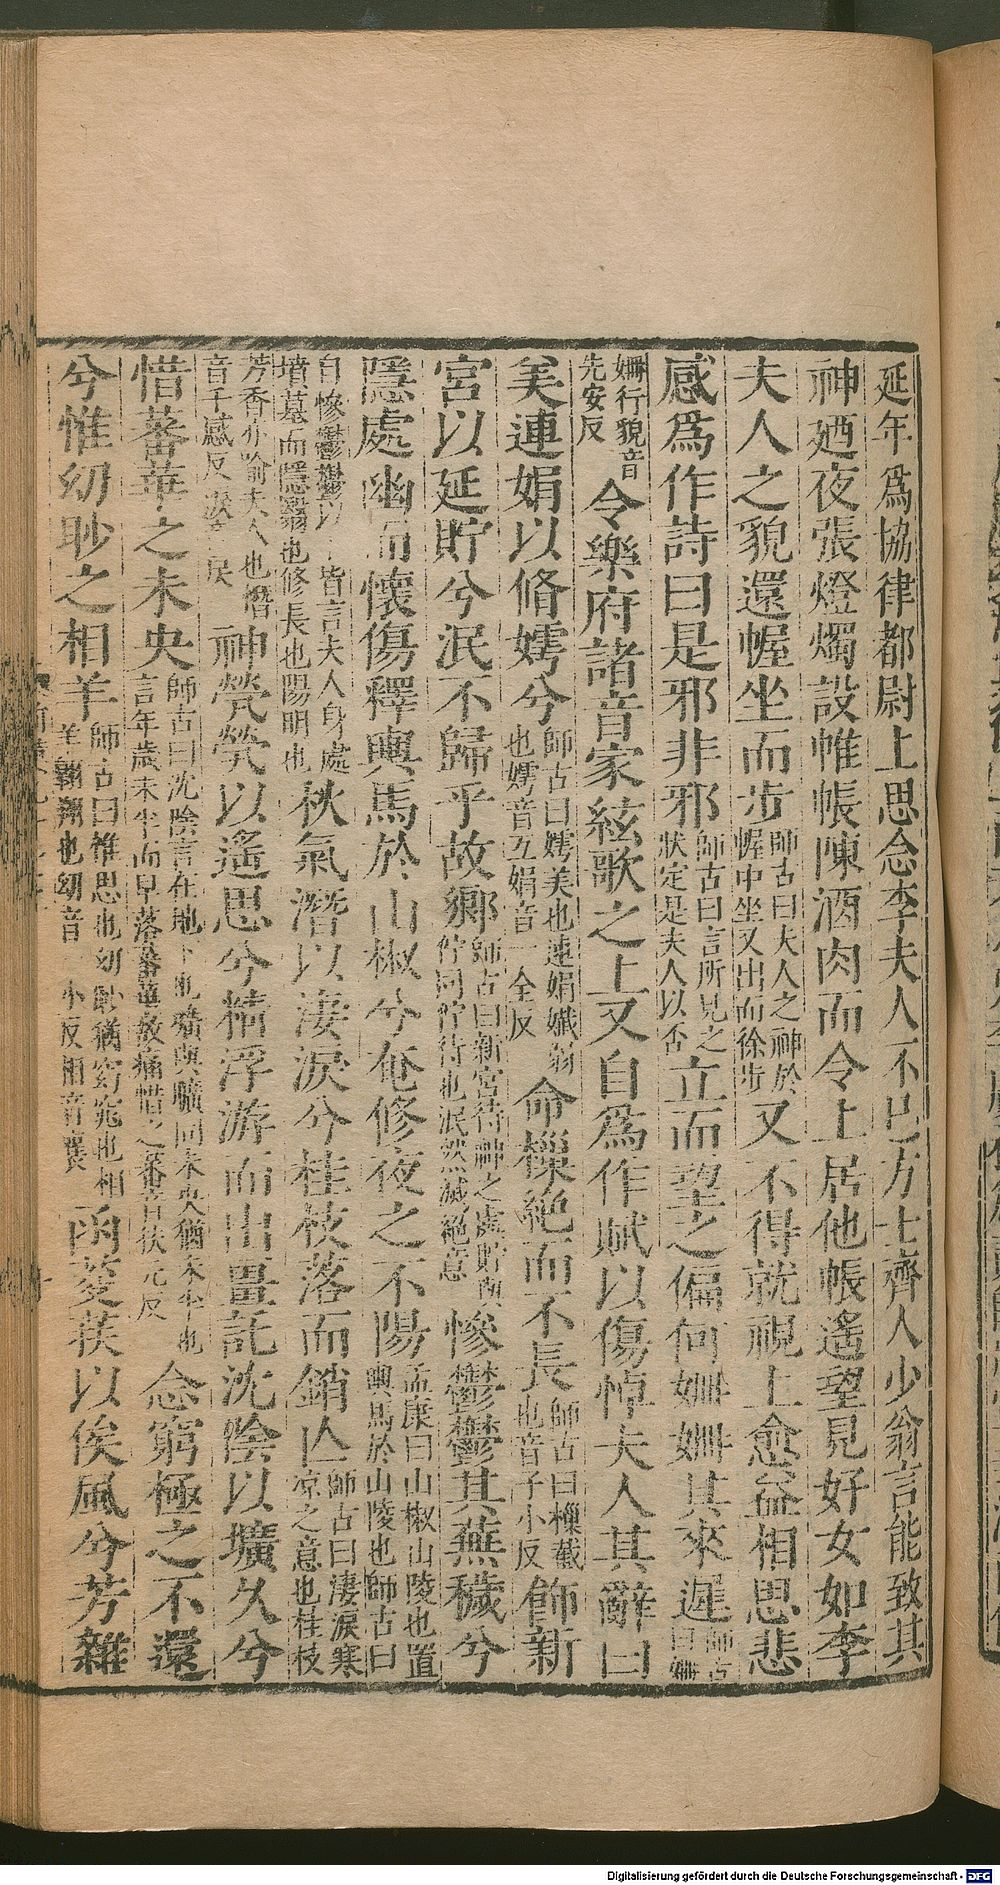 延年爲協律都尉上思念李夫人不已方士齊人少翁言能致其
神廼夜張燈燭設帷帳陳酒肉而令上居他帳遙望見好女如李
夫人之貌還幄坐而步師古曰夫人之神於幄中坐又出而徐步又不得就視上愈益相思悲
感爲作詩曰是邪非邪師古曰言所見之狀定是夫人以否立而望之偏何姍姍其來遲師古曰姍
姍行貌音先安反令樂府諸音家絃歌之上又自爲作賦以傷悼夫人其辭曰
美連娟以脩嫮兮師古曰嫮美也連娟孅弱也嫮音互娟音一全反命樔絕而不長師古曰樔截也音子小反飾新
宮以延貯兮泯不歸乎故鄉師古曰新宮待神之處貯與佇同佇待也泯然滅絕意慘鬱鬱其蕪穢兮
隱處幽而懷傷釋輿馬於山椒兮奄修夜之不陽孟康曰山椒山陵也置輿馬於山陵也師古曰
自慘鬱鬱以 皆言夫人身處墳墓而隱翳也修長也陽明也秋氣潛以淒淚兮桂枝落而銷亾師古曰淒淚寒凉之意也桂枝
芳香亦喻夫人也憯音千感反淚 戾神煢煢以遙思兮精浮游而出畺託沈陰以壙久兮
惜蕃華之未央師古曰沈陰言在地下也壙與曠同未央猶未半也言年歲未半而早落蕃華故痛惜之蕃音扶元反念窮極之不還
兮惟幼眇之相羊師古曰惟思也幼眇猶窈窕也相羊翱翔也幼音一小反相音襄函荾荴以俟風兮芳雜
Digitalisierung gefördert durch die Deutsche Forschungsgemeinschaft - DFG